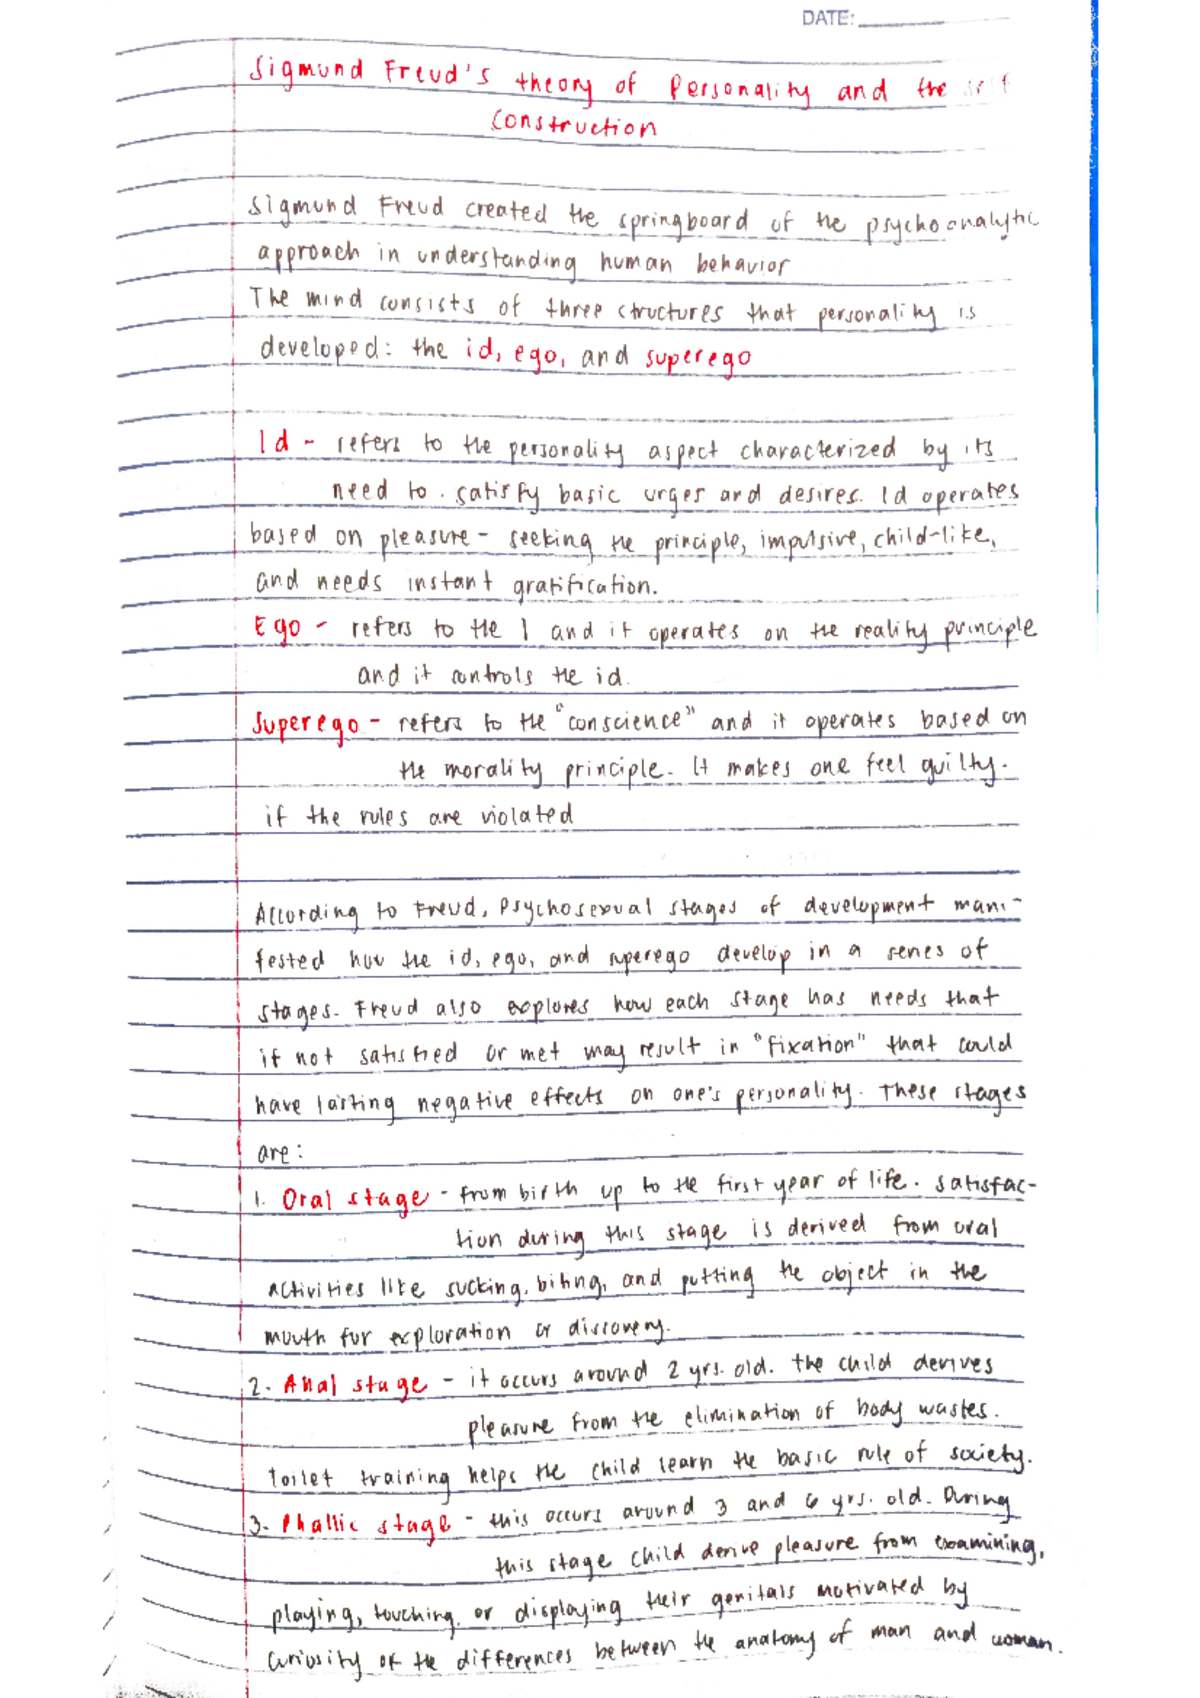 DATE:
Sigmund Freud's theory of Personality and the
Construction
Sigmund Freud created the springboard of the psychoanalytic
approach in understanding human behavior
The mind consists of three structures that personality is
developed: the id, ego, and superego
Id - refers to the personality aspect characterized by its
need to satisfy basic urges and desires. Id operates
based on pleasure - seeking the principle, impulsive, child-like,
and needs instant gratification.
Ego - refers to the I and it operates on the reality principle
and it controls the id.
Superego - refers to the "conscience" and it operates based on
the morality principle. It makes one feel guilty.
if the rules are violated
According to Freud, Psychosexual stages of development mani-
fested how the id, ego, and superego develop in a series of
stages. Freud also explores how each stage has needs that
if not satisfied or met may result in "fixation" that could
have lasting negative effects on one's personality. These stages
are:
1. Oral stage - from birth up to the first year of life. satisfac-
tion during this stage is derived from oral
activities like sucking, biting, and putting the object in the
mouth for exploration or discovery.
2. Anal stage - it occurs around 2 yrs. old. the child derives
pleasure from the elimination of body wastes.
Toilet training helps the child learn the basic rule of society.
3. Phallic stage - this occurs around 3 and 6 yrs. old. During
this stage child derive pleasure from examining,
playing, touching, or displaying their genitals motivated by
curiosity of the differences between the anatomy of man and woman.